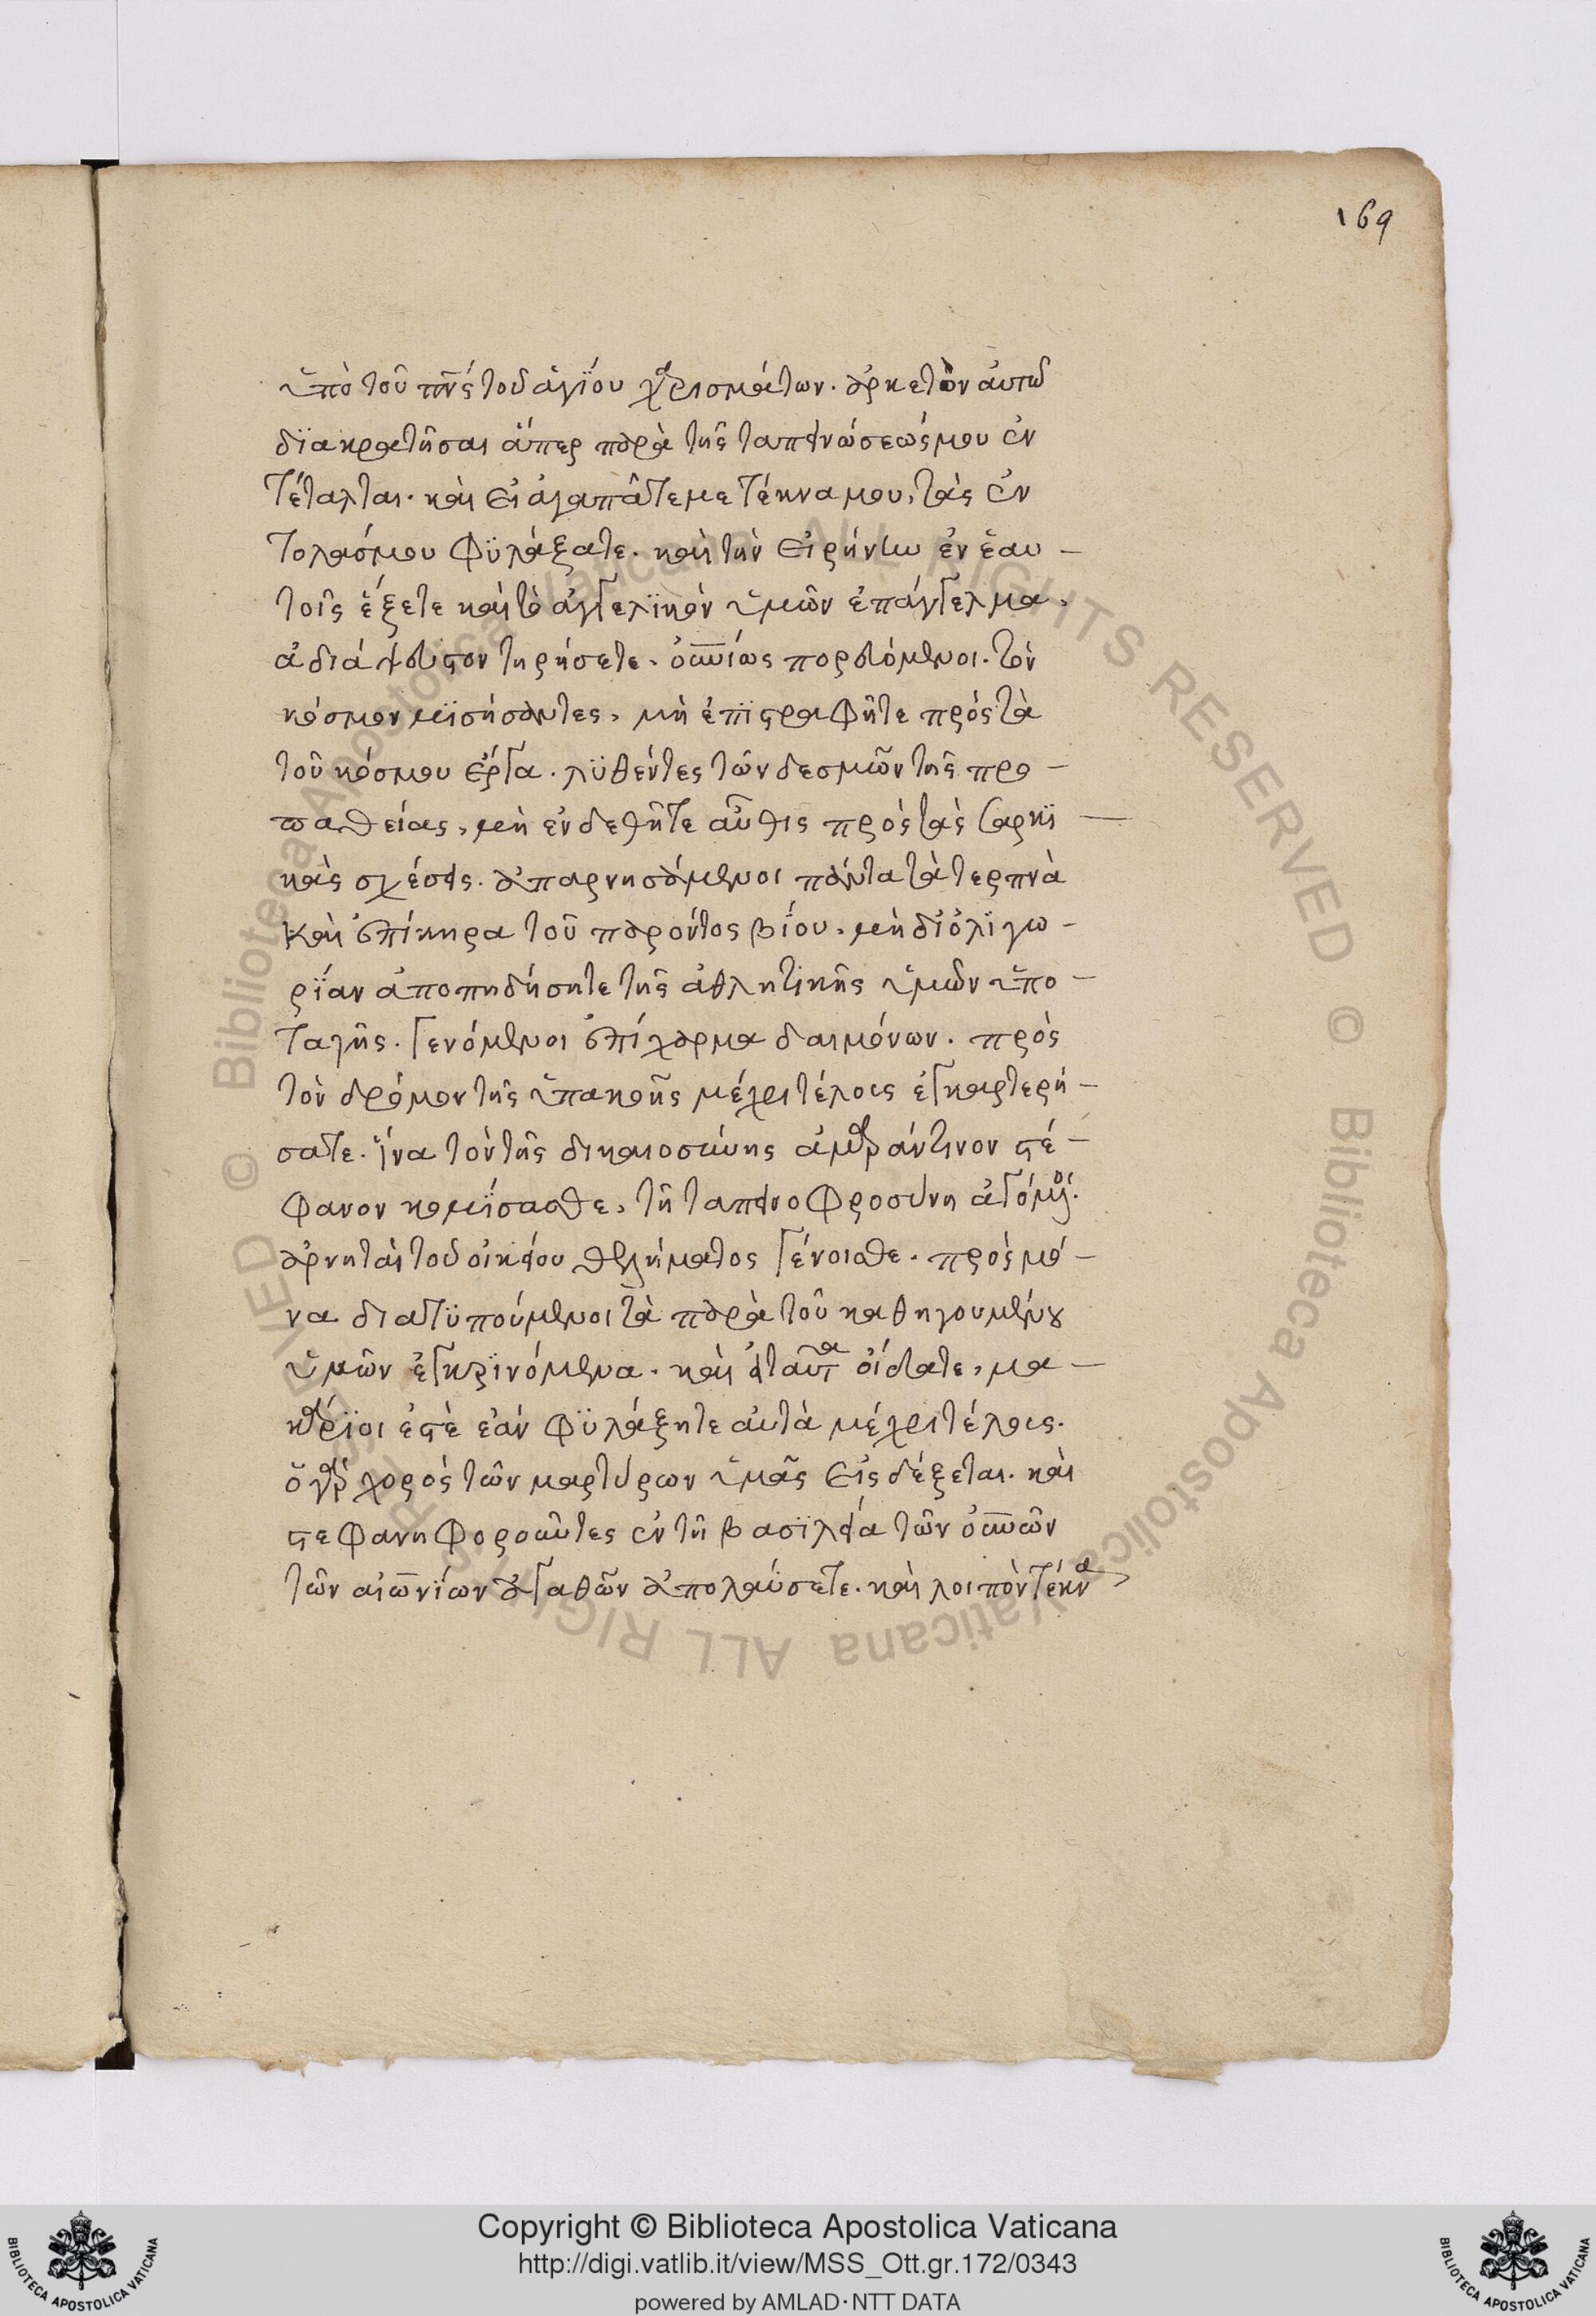 169
ὑπὸ τοῦ πν̅ς τοῦ ἁγΐου χαρισμάτων. ἀρκετὸν αὐτῶ
δϊακρατῆσαι ἅπερ παρὰ τῆς ταπεινώσεώς μου ἐν
τέταλται. καὶ εἰ ἀγαπᾶτε με τέκνα μου, τὰς ἐν
τολάς μου φϋλάξατε. καὶ τὴν εἰρήνην ἐν ἑαυ –
τοῖς ἕξετε καὶ τὸ ἀγγελϊκὸν ὑμῶν ἐπάγγελμα,
ἀδιάψευστον τηρήσετε. ὁσίως πορευόμενοι. τὸν
κόσμον μϊσήσαντες, μὴ ἐπϊστραφῆτε πρὸς τὰ
τοῦ κόσμου ἔργα. λϋθέντες τῶν δεσμῶν τῆς προ –
παθείας, μὴ ἐνδεθῆτε αὖθις πρὸς τὰς σαρκϊ –
κὰς σχέσεις. ἀπαρνησάμενοι πάντα τὰ τερπνὰ
καὶ ἐπίκηρα τοῦ παρόντος βΐου, μὴ δι' ὀλϊγω –
ρΐαν ἀποπηδήσητε τῆς ἀθλητικῆς ὑμῶν ὑπο –
ταγῆς. γενόμενοι ἐπίχαρμα δαιμόνων. πρὸς
τὸν δρόμον τῆς ὑπακοῆς μέχρι τέλους ἐγκαρτερή –
σατε. ἵνα τὸν τῆς δικαιοσύνης ἀμαράντινον στέ –
φανον κομΐσασθε, τῆ ταπεινοφροσύνη ἀγόμενοι.
ἀρνηταὶ τοῦ οἰκείου θελήματος γένοισθε. πρὸς μό –
να διατϋπούμενοι τὰ παρὰ τοῦ καθηγουμένου
ὑμῶν ἐγκρϊνόμενα. καὶ εἰ ταῦτα οἴδατε, μα –
κάρϊοι ἐστὲ ἐὰν φϋλάξητε αὐτὰ μέχρι τέλους.
ὁ γὰρ χορὸς τῶν μαρτύρων ὑμᾶς εἰσδέξεται. καὶ
στεφανηφοροῦντες ἐν τῆ βασϊλεία τῶν οὐνῶν
τῶν αἰωνΐων ἀγαθῶν ἀπολαύσετε. καὶ λοιπὸν τέκνα
Copyright © Biblioteca Apostolica Vaticana
http://digi.vatlib.it/view/MSS_Ott.gr.172/0343
powered by AMLAD·NTT DATA